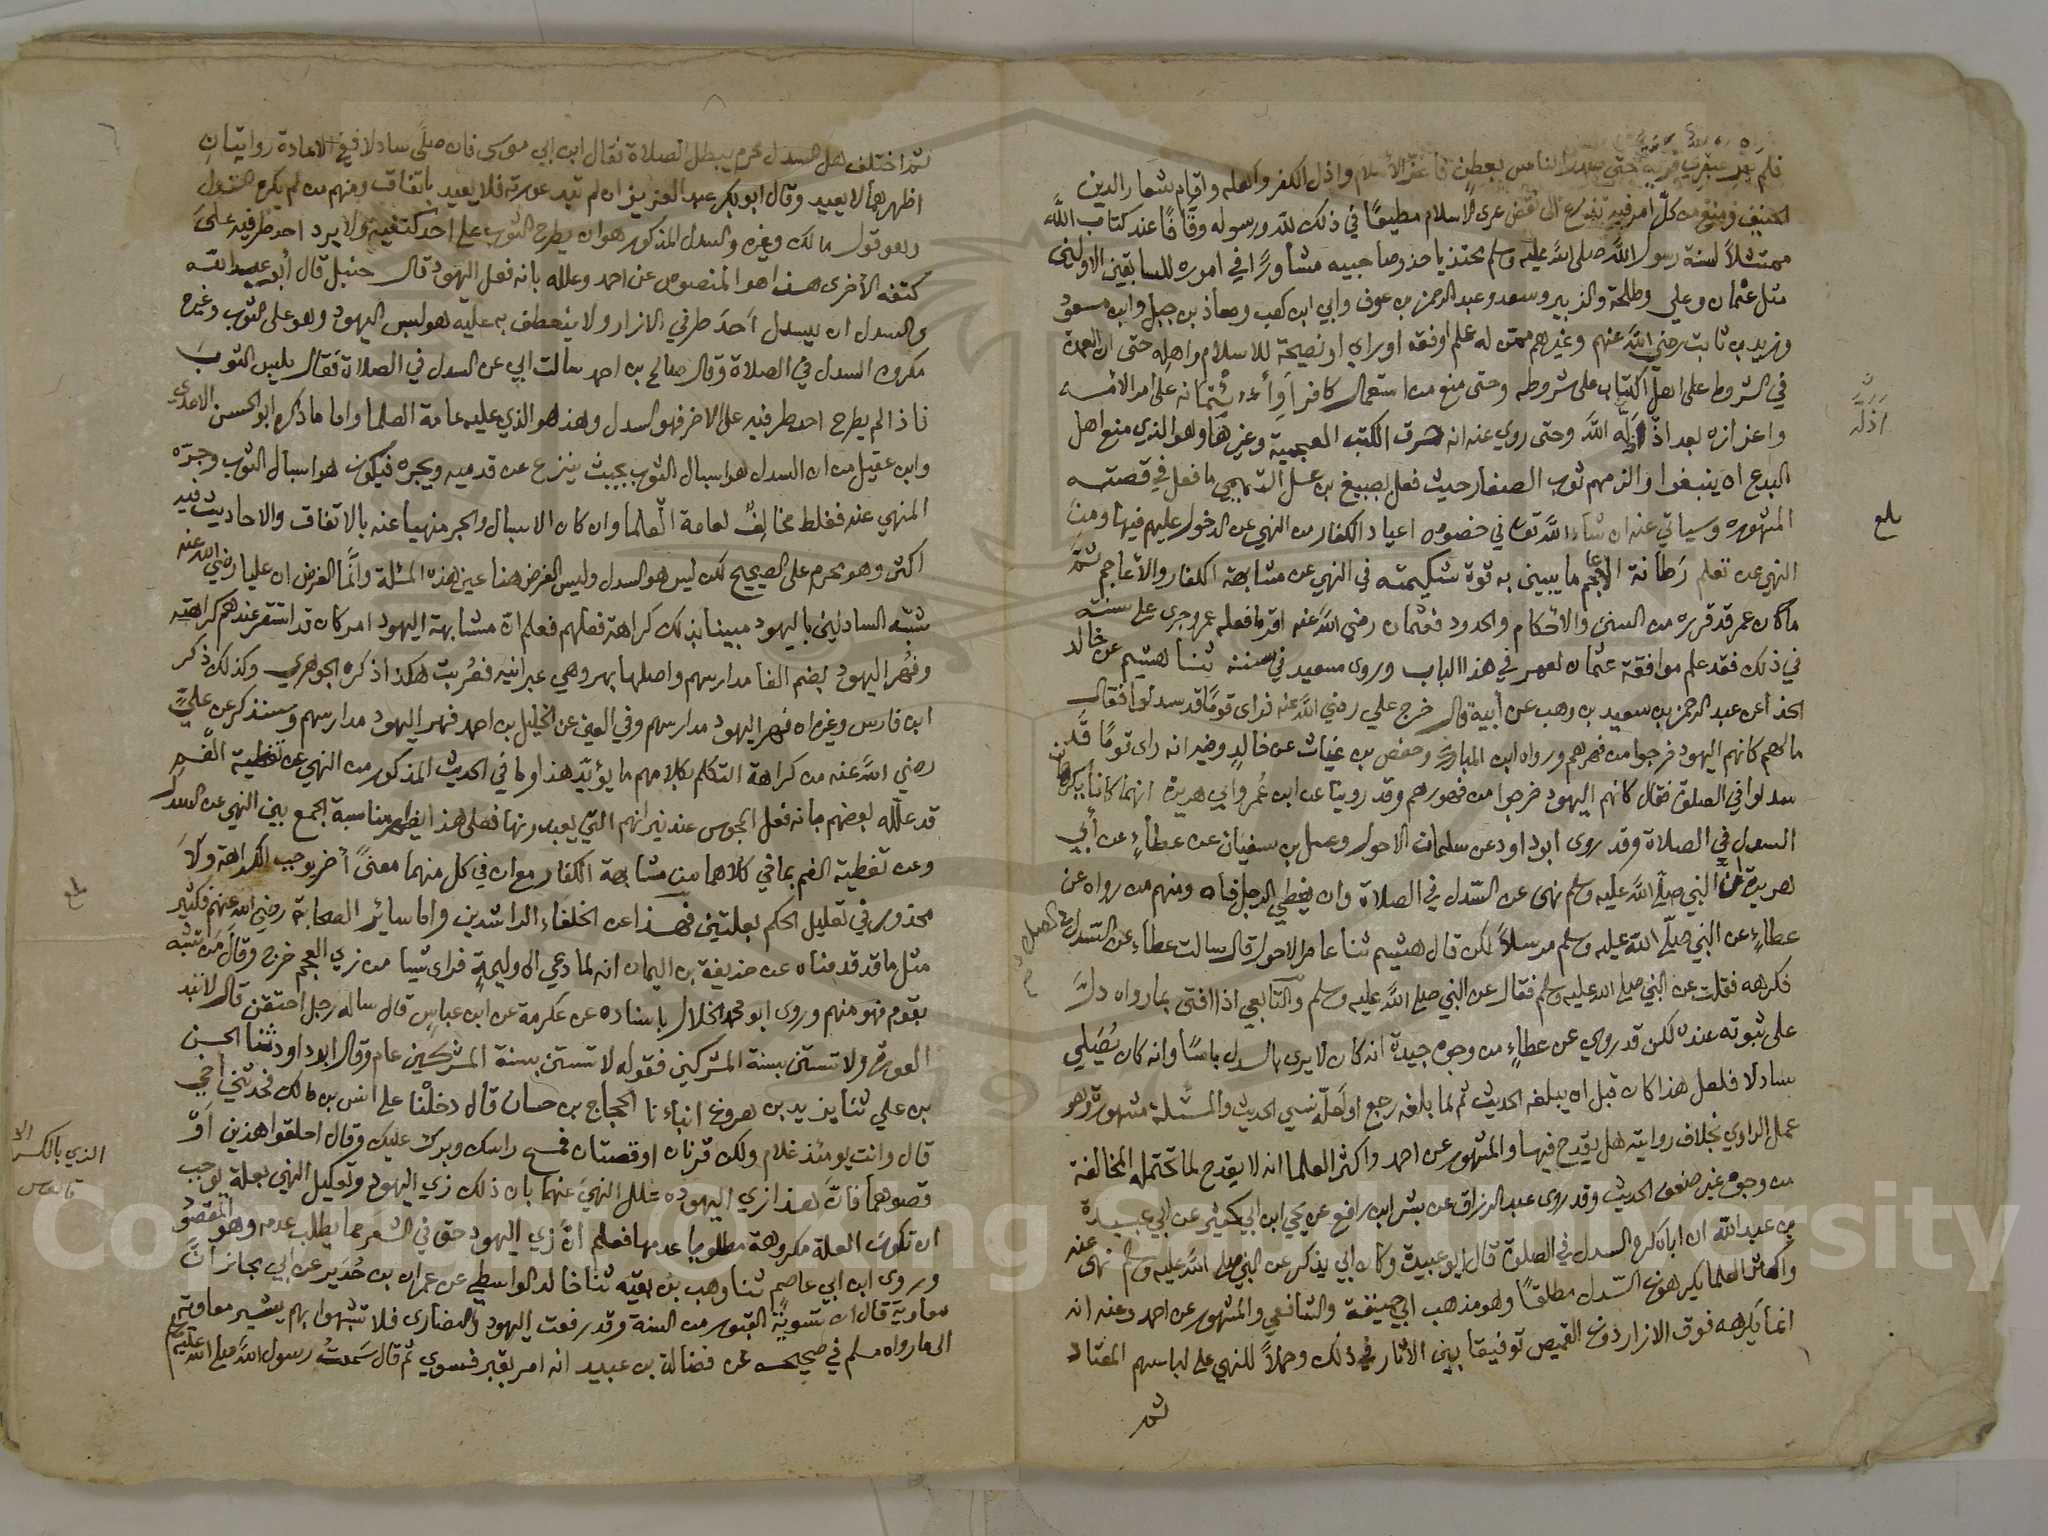 فلم يفري فريه حتى ضرب الناس بعطن فاعز الاسلام واذل الكفر واهله واقام شعار الدين
الحنيف ومنع من كل امر فيه تذرع الى نقض عرى الاسلام مطيعًا في ذلك لله ورسوله وقافًا عند كتاب الله
ممتثلاً لسنة رسول الله صلى الله عليه وسلم محتذيا حذو صاحبيه مشاورًا في اموره للسابقين الاولين
مثل عثمان وعلي وطلحة والزبير وسعد وعبد الرحمن بن عوف وابي ابن كعب ومعاذ بن جبل وابن مسعود
وزيد بن ثابت رضي الله عنهم وغيرهم ممن له علم او فقه او راي او نصيحة للاسلام واهله حتى ان العمدة
في الشروط على اهل الكتاب على شروطه وحتى منع من استعمال كافر او أئتمانه على امر الامه
واعزازه بعد اذ اذله الله وحتى روي عنه انه حرق الكتب العجمية وغيرها وهو الذي منع اهل
اذله
البدع ان ينبغوا والزمهم ثوب الصغار حيث فعل بصبيغ بن عسل التميمي ما فعل في قصته
المشهوره وسياتي عنه ان شاء الله تعالى في خصوص اعياد الكفار من النهي عن الدخول عليهم فيها ومن
بلغ
النهي عن تعلم رطانة الاعاجم ما يبين به قوة شكيمته في النهي عن مشابهة الكفار والاعاجم ثم
ما كان عمر قد قرره من السنن والاحكام والحدود فعثمان رضي الله عنه اقر ما فعله عمر وجرى على سنته
في ذلك فقد علم موافقة عثمان لعمر في هذا الباب وروى سعيد في سننه ثنا هشيم عن خالد
الحذا عن عبد الرحمن بن سعيد بن وهب عن أبيه قال خرج علي رضي الله عنه فراى قومًا قد سدلوا فقال
ما لهم كانهم اليهود خرجوا من فهرهم ورواه ابن المبارك وحفص بن غياث عن خالد وفيه انه راى قومًا قد
سدلوا في الصلوة فقال كانهم اليهود خرجوا من فهورهم وقد روينا عن ابن عمر وابي هريرة انهما كانا يكرهان
السدل في الصلاة وقد روى ابو داود عن سليمان الاحول وعسل بن سفيان عن عطاءٍ عن أبي
هريرة ان النبي صلى الله عليه وسلم نهى عن السدل في الصلاة وان يغطي الرجل فاه ومنهم من رواه عن
عطاءٍ عن النبي صلى الله عليه وسلم مرسلاً لكن قال هشيم ثنا عامر الاحول قال سالت عطاء عن السدل
فكرهه فقلت عن النبي صلى الله عليه وسلم فقال عن النبي صلى الله عليه وسلم والتابعي اذا افتى بما رواه دل
على ثبوته عنده لكن قد روي عن عطاءٍ من وجوه جيدة انه كان لا يرى بالسدل باسًا وانه كان يصلي
سادلا فلعل هذا كان قبل ان يبلغه الحديث ثم لما بلغه رجع او لعله نسي الحديث والمسئلة مشهورة وهو
عمل الراوي بخلاف روايته هل يقدح فيها والمشهور عن احمد واكثر العلما انه لا يقدح لما تحتمله المخالفة
من وجوه غير ضعف الحديث وقد روى عبد الرزاق عن بشر ابن رافع عن يحي ابن ابي كثير عن ابي عبيدة
بن عبد الله ان اباه كره السدل في الصلوة قال ابو عبيدة وكان ابي يذكر عن النبي صلى الله عليه وسلم نهى عنه
واكثر العلما يكرهون السدل مطلقًا وهو مذهب ابي حنيفة والشافعي والمشهور عن احمد وعنه انه
انما يكرهه فوق الازار دون القميص توفيقا بين الاثار في ذلك وحملاً للنهي على لباسهم المعتاد
ثم
ثم اختلف هل السدل محرم يبطل الصلاة فقال ابن ابي موسى فان صلى سادلا ففي الاعادة روايتان
اظهرهما لا يعيد وقال ابو بكر عبد العزيز ان لم تبد عورته فلا يعيد باتفاق ومنهم من لم يكره السدل
وهو قول مالك وغيره والسدل المذكور هو ان يطرح الثوب على احد كتفيه ولا يرد احد طرفيه على
كتفه الاخرى هذا هو المنصوص عن احمد وعلله بانه فعل اليهود قال حنبل قال أبو عبد الله
والسدل ان يسدل أحد طرفي الازار ولا ينعطف به عليه وهو لبس اليهود وهو على الثوب وغيره
مكروه السدل في الصلاة وقال صالح بن احمد سالت ابي عن السدل في الصلاة فقال يلبس الثوب
فاذا لم يطرح احد طرفيه على الاخر فهو السدل وهذا هو الذي عليه عامة العلما واما ما ذكره ابو الحسن الامدي
وابن عقيل من ان السدل هو اسبال الثوب بحيث ينزع عن قدميه ويجره فيكون هو اسبال الثوب وجره
المنهي عنه فغلط مخالف لعامة العلما وان كان الاسبال والجر منهيا عنه بالاتفاق والاحاديث فيه
اكثر وهو محرم على الصحيح لكن ليس هو السدل وليس الغرض هنا عين هذه المسئلة وانما الغرض ان عليا رضي الله عنه
شبه السادلين باليهود مبينا بذلك كراهة فعلهم فعلم ان مشابهة اليهود امر كان قد استقر عندهم كراهته
وفهر اليهود بضم الفا مدارسهم واصلها بهر وهي عبرانيه فعربت هكذا ذكره الجوهري وكذلك ذكر
ابن فارس وغيره ان فهر اليهود مدارسهم وفي العين عن الخليل بن احمد فهر اليهود مدارسهم وسنذكر عن علي
رضي الله عنه من كراهة التكلم بكلامهم ما يؤيد هذا وما في الحديث المذكور من النهي عن تغطية الفم
قد علله بعضهم بانه فعل المجوس عند نيرانهم التي يعبدونها فعلى هذا ايظهر مناسبة الجمع بين النهي عن السدل
وعن تغطية الفم بما في كلاهما من مشابهة الكفار مع ان في كل منهما معنىً أخر يوجب الكراهة ولا
محذور في تعليل الحكم بعلتين فهذا عن الخلفاء الراشدين واما سائر الصحابة رضي الله عنهم فكثير
بلغ
مثل ما قد قدمناه عن حذيفة بن اليمان انه لما دعي الى وليمة فراى شيا من زي العجم خرج وقال من تشبه
بقوم فهو منهم وروى ابو محمد الخلال باسناده عن عكرمة عن ابن عباس قال ساله رجل احتقن قال لا تبد
العورة ولا تستن بسنة المشركين فقوله لا تستن بسنة المشركين عام وقال ابو داود ثنا الحسن
بن علي ثنا يزيد بن هرون انباءنا الحجاج بن حسان قال دخلنا على انس بن مالك فحدثتني اختي
قال وانت يومئذ غلام ولك قرنان او قصتان فمسح راسك وبرك عليك وقال احلقوا هذين أو
قصوهما فان هذا زي اليهود علل النهي عنهما بان ذلك زي اليهود وتعليل النهي بعلة يوجب
ان تكون العلة مكروهة مطلوبا عدمها فعلم ان زي اليهود حتى في الشعر مما يطلب عدمه وهو المقصود
وروى ابن ابي عاصم ثنا وهب بن بقيه ثنا خالد الواسطي عن عمران بن حدير عن ابي مجلز ان
معاوية قال ان تسوية القبور من السنة وقد رفعت اليهود والنصارى فلا تشبهوا بهم يشير معاوية
الى ما رواه مسلم في صحيحه عن فضالة بن عبيد انه امر بقبر فسوي ثم قال سمعت رسول الله صلى الله عليه وسلم
الزي بالكسر
قاموس
Copyright © King Saud University